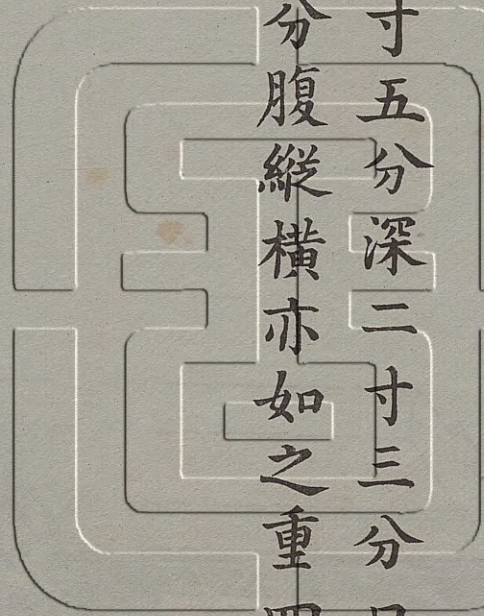 寸五分深二寸三分
分腹縱橫亦如之重